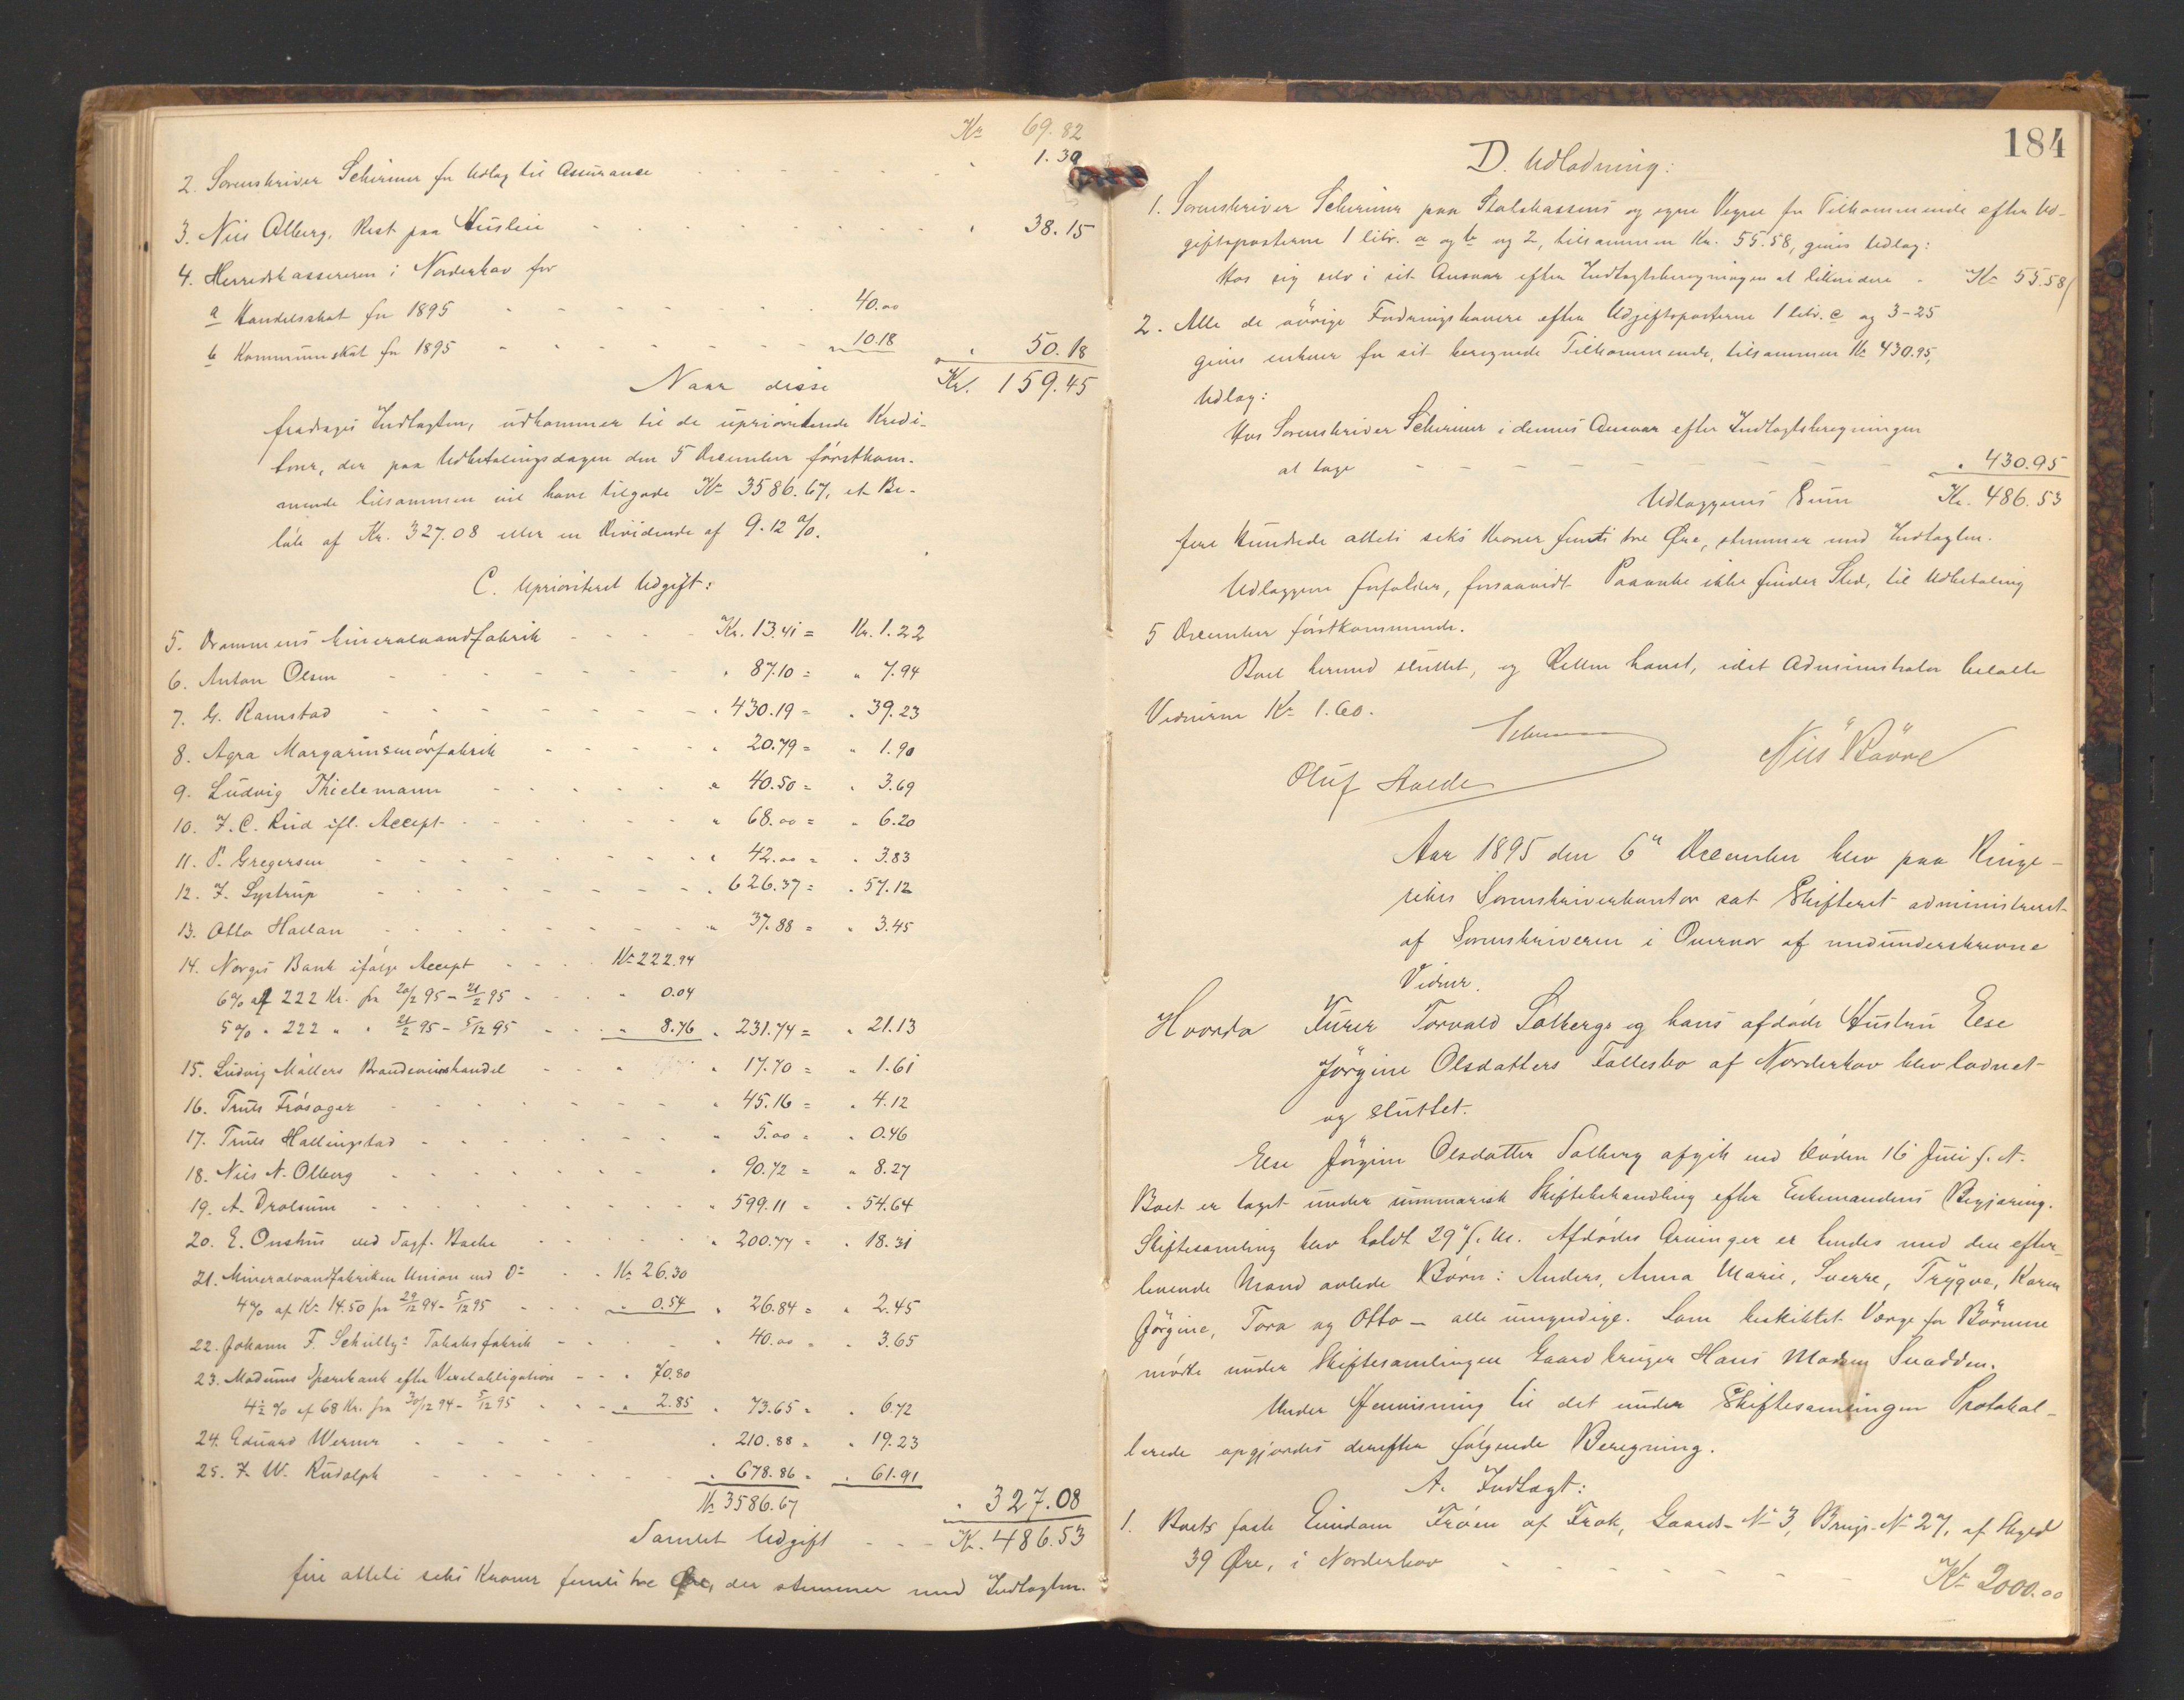 Kr. 69.82
2. Sorenskriver Schirmer for Udlæg til Assurance - - - - " 1.30
3. Nils Olberg, Rest paa Husleie - - - - " 38.15
4. Herredskassereren i Norderhov for
a Handelsskat for 1895 - - - - 40.00
b Kommuneskat for 1895 - - - - " 10.18 " 50.18
Naar disse Kr. 159.45
fradrages Indtægten, udkommer til de uprioriterede Kredi-
torer, der paa Udbetalingsdagen den 5 December førstkom-
mende tilsammen vil have tilgode Kr. 3586.67, et Be-
løb af Kr. 327.08 eller en Dividende af 9.12 %.
C. Uprioriteret Udgift:
5. Drammens Mineralvandfabrik - - - Kr. 13.41 = Kr. 1.22
6. Anton Olsen - - - " 87.10 = " 7.94
7. G. Ramstad - - - " 430.19 = " 39.23
8. Agra Margarinsmørfabrik - - - " 20.79 = " 1.90
9. Ludvig Thielemann - - - " 40.50 = " 3.69
10. F. C. Rud ifl. Accept - - - " 68.00 = " 6.20
11. P. Gregersen - - - " 42.00 = " 3.83
12. F. Systrup - - - " 626.37 = " 57.12
13. Otto Haslan - - - " 37.88 = " 3.45
14. Norges Bank ifølge Accept - - - Kr. 222.94
6% af 222 Kr. fra 20/2 95 - 21/2 95 - " 0.04
5% " 222 " " 21/2 95 - 5/12 95 - " 8.76 " 231.74 = " 21.13
15. Ludvig Møllers Brændevinshandel - - - " 17.70 = " 1.61
16. Truls Frøsager - - - " 45.16 = " 4.12
17. Truls Hallingstad - - - " 5.00 = " 0.46
18. Nils N. Olberg - - - " 90.72 = " 8.27
19. A. Drolsum - - - " 599.11 = " 54.64
20. E. Onshus ved Sagf. Bache - - - " 200.77 = " 18.31
21. Mineralvandfabriken Union ved Do - - Kr. 26.30
4% af Kr. 14.50 fra 29/12 94 - 5/12 95 - - " 0.54 " 26.84 = " 2.45
22. Johann F. Schultz' Tobaksfabrik - - " 40.00 = " 3.65
23. Modums Sparebank efter Vexelobligation - - " 70.80
4½ % af 68 Kr. fra 30/12 94 - 5/12 95 - - " 2.85 " 73.65 = " 6.72
24. Eduard Werner - - - " 210.88 = " 19.23
25. F. W. Rudolph - - - " 678.86 = " 61.91
Kr. 3586.67 " 327.08
Samlet Udgift - - - Kr. 486.53
fire otteti seks Kroner femti tre Øre, der stemmer med Indtægten.
184
D. Udlodning:
1. Sorenskriver Schirmer paa Statskassens og egne Vegne for Tilkommende efter Ud-
giftsposterne 1 litr. a og b og 2, tilsammen Kr. 55.58, gives Udlæg:
Hos sig selv i sit Ansvar efter Indtægtsberegningen at likvidere - Kr. 55.58
2. Alle de øvrige Fordringshavere efter Udgiftsposterne 1 litr. c og 3-25
gives enhver for sit beregnede Tilkommende, tilsammen Kr. 430.95,
Udlæg:
Hos Sorenskriver Schirmer i dennes Ansvar efter Indtægtsberegningen
at tage - - - - " 430.95
Udlæggenes Sum Kr. 486.53
fire Hundrede otteti seks Kroner femti tre Øre, stemmer med Indtægten.
Udlæggene forfalder, forsaavidt Paaanke ikke finder Sted, til Udbetaling
5 December førstkommende.
Boet hermed sluttet, og Retten hævet, idet Administrator betalte
Vidnerne Kr. 1.60.
Schirmer
Oluf Hvelde Nils Bøvre
Aar 1895 den 6te December blev paa Ringe-
rikes Sorenskriverkontor sat Skifteret administreret
af Sorenskriveren i Overvær af medunderskrevne
Vidner.
Hvorda Furer Torvald Solbergs og hans afdøde Hustru Else
Jørgine Olsdatters Fællesbo af Norderhov blev lodnet
og sluttet.
Else Jørgine Olsdatter Solberg afgik ved Døden 16 Juli f. A.
Boet er taget under summarisk Skiftebehandling efter Enkemandens Begjæring.
Skiftesamling blev holdt 29de f. M. Afdødes Arvinger er hendes med den efter-
levende Mand avlede Børn: Anders, Anna Marie, Sverre, Trygve, Karen
Jørgine, Tora og Otto — alle umyndige. Som beskikket Værge for Børnene
mødte under Skiftesamlingen Gaardbruger Hans Snadden.
Under Henvisning til det under Skiftesamlingen Protokol-
lerede opgjordes derefter følgende Beregning.
A. Indtægt:
1. Boets faste Eiendom Frøen af Frok, Gaards-No 3, Brugs-No 27, af Skyld
39 Øre, i Norderhov - - - - Kr. 2000.00